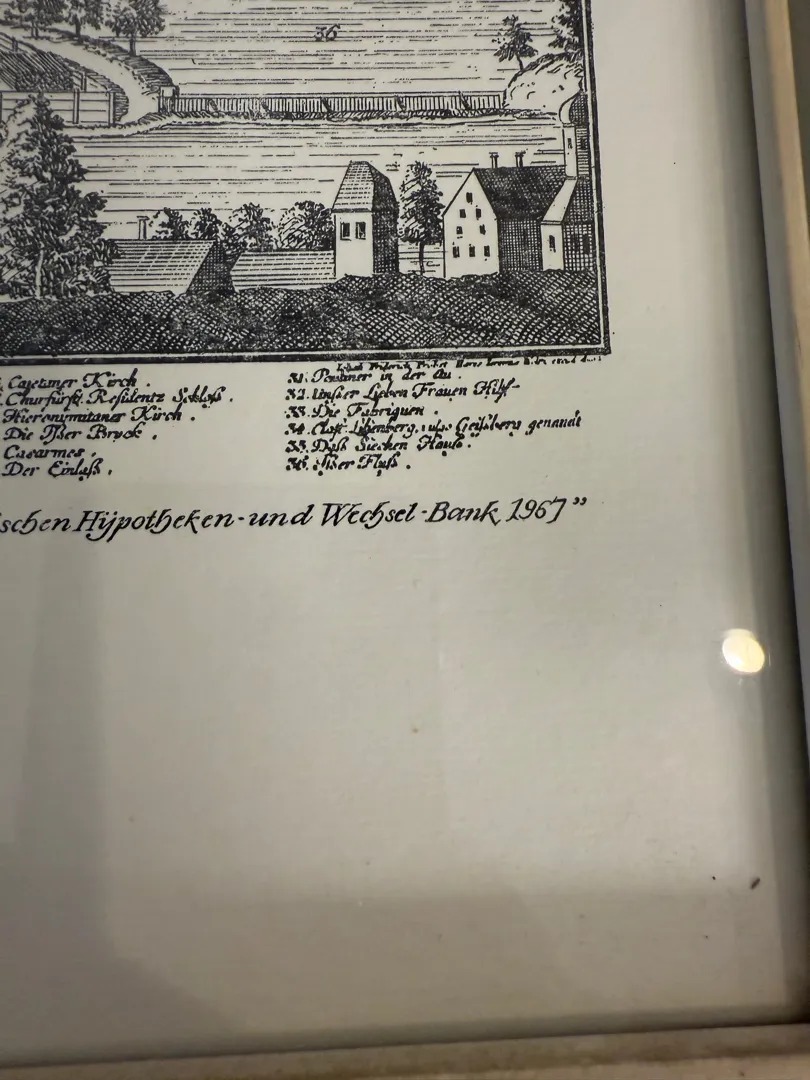 36
Cajetaner Kirch.
Churfürstl. Residentz Schloß.
Hieronymitaner Kirch.
Die Ißer Bruck.
Casarmes.
Der Einlaß.
31. Pauliner in der Au.
32. Unßer Lieben Frauen Hilf
33. Die Fabriquen.
34. genandt
35. Daß Siechen Hauß.
36. Ißer Fluß.
schen Hÿpotheken-und Wechsel-Bank 1967"